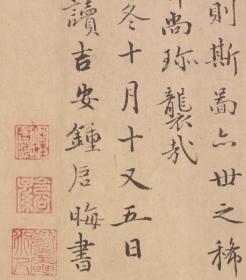 則斯啚亦世之稀
尚珎襲哉
冬十月十又五日
讀吉安鍾启晦書